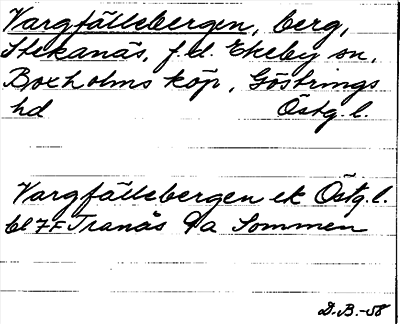 Vargfällebergen, berg,
Stekanäs, f.d. Ekeby sn,
Boxholms köp, Göstrings
hd Östg. l.
Vargfällebergen ek Östg. l.
bl 7F Tranås 9a Sommen
D.B.-58